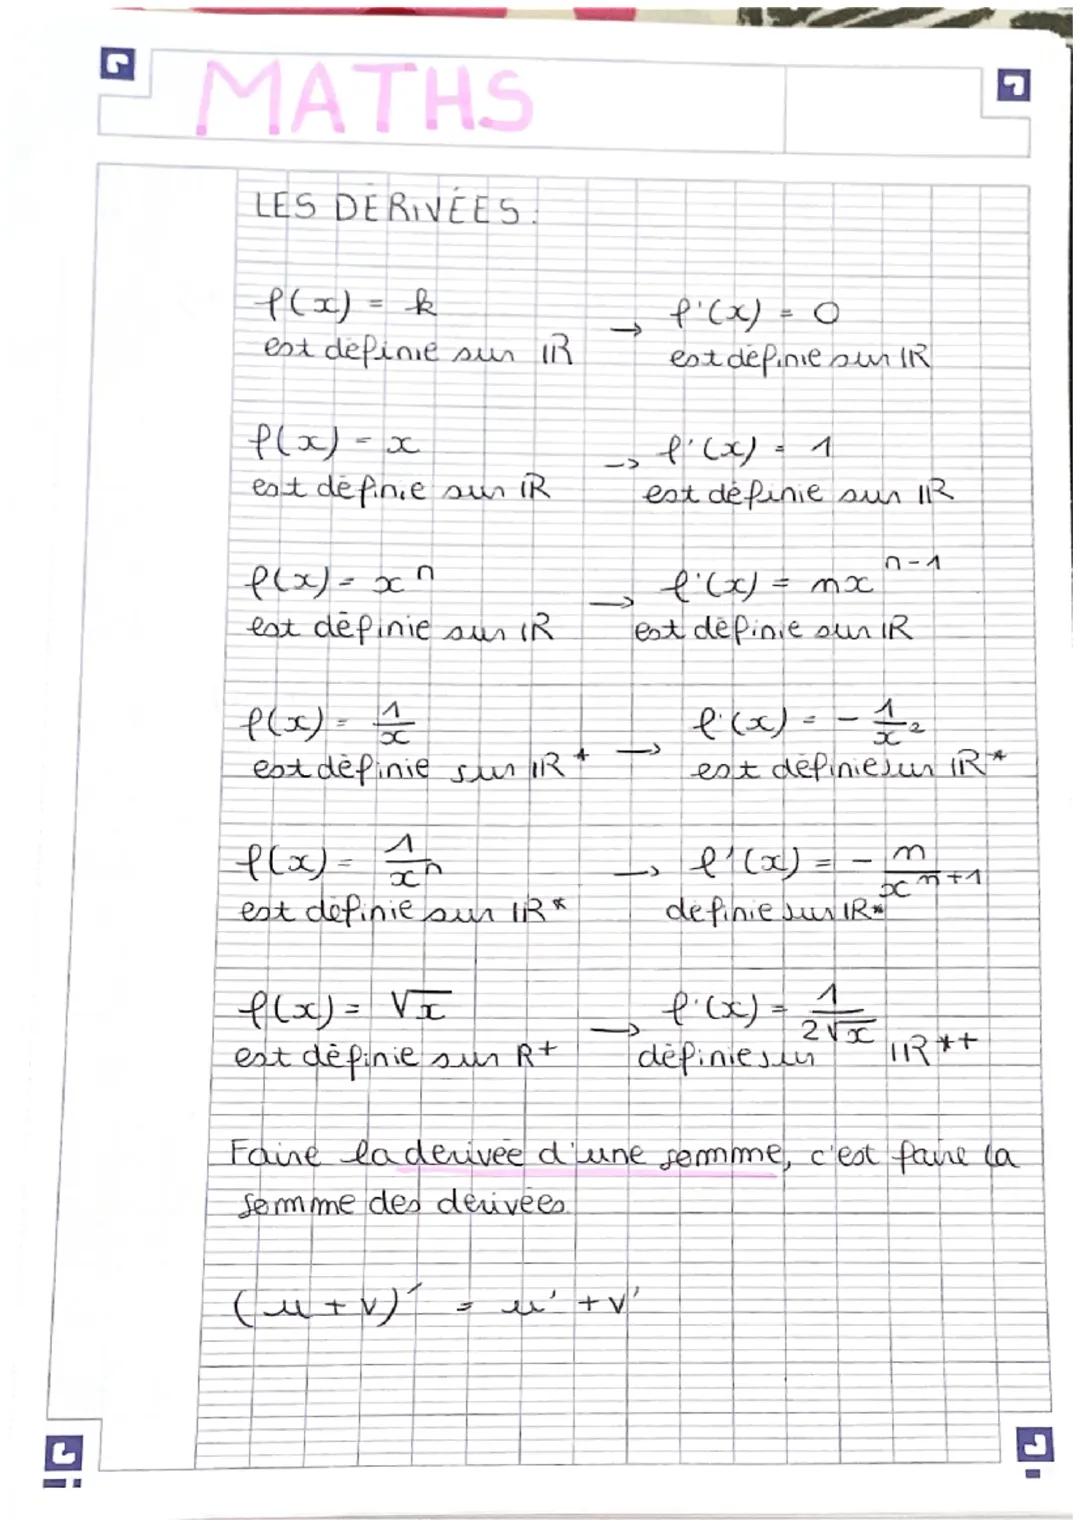 MATHS
LES DÉRIVÉES :
f(x) = k → f'(x) = 0
est définie sur ℝ est définie sur ℝ
f(x) = x → f'(x) = 1
est définie sur ℝ est définie sur ℝ
f(x) = xⁿ → f'(x) = nxⁿ⁻¹
est définie sur ℝ est définie sur ℝ
f(x) = 1/x → f'(x) = - 1/x²
est définie sur ℝ* est définie sur ℝ*
f(x) = 1/xⁿ → f'(x) = - n/xⁿ⁺¹
est définie sur ℝ* définie sur ℝ*
f(x) = √x → f'(x) = 1/2√x
est définie sur R+ définie sur ℝ*+
Faire la derivée d'une somme, c'est faire la
somme des dérivées
(u + v)' = u' + v'